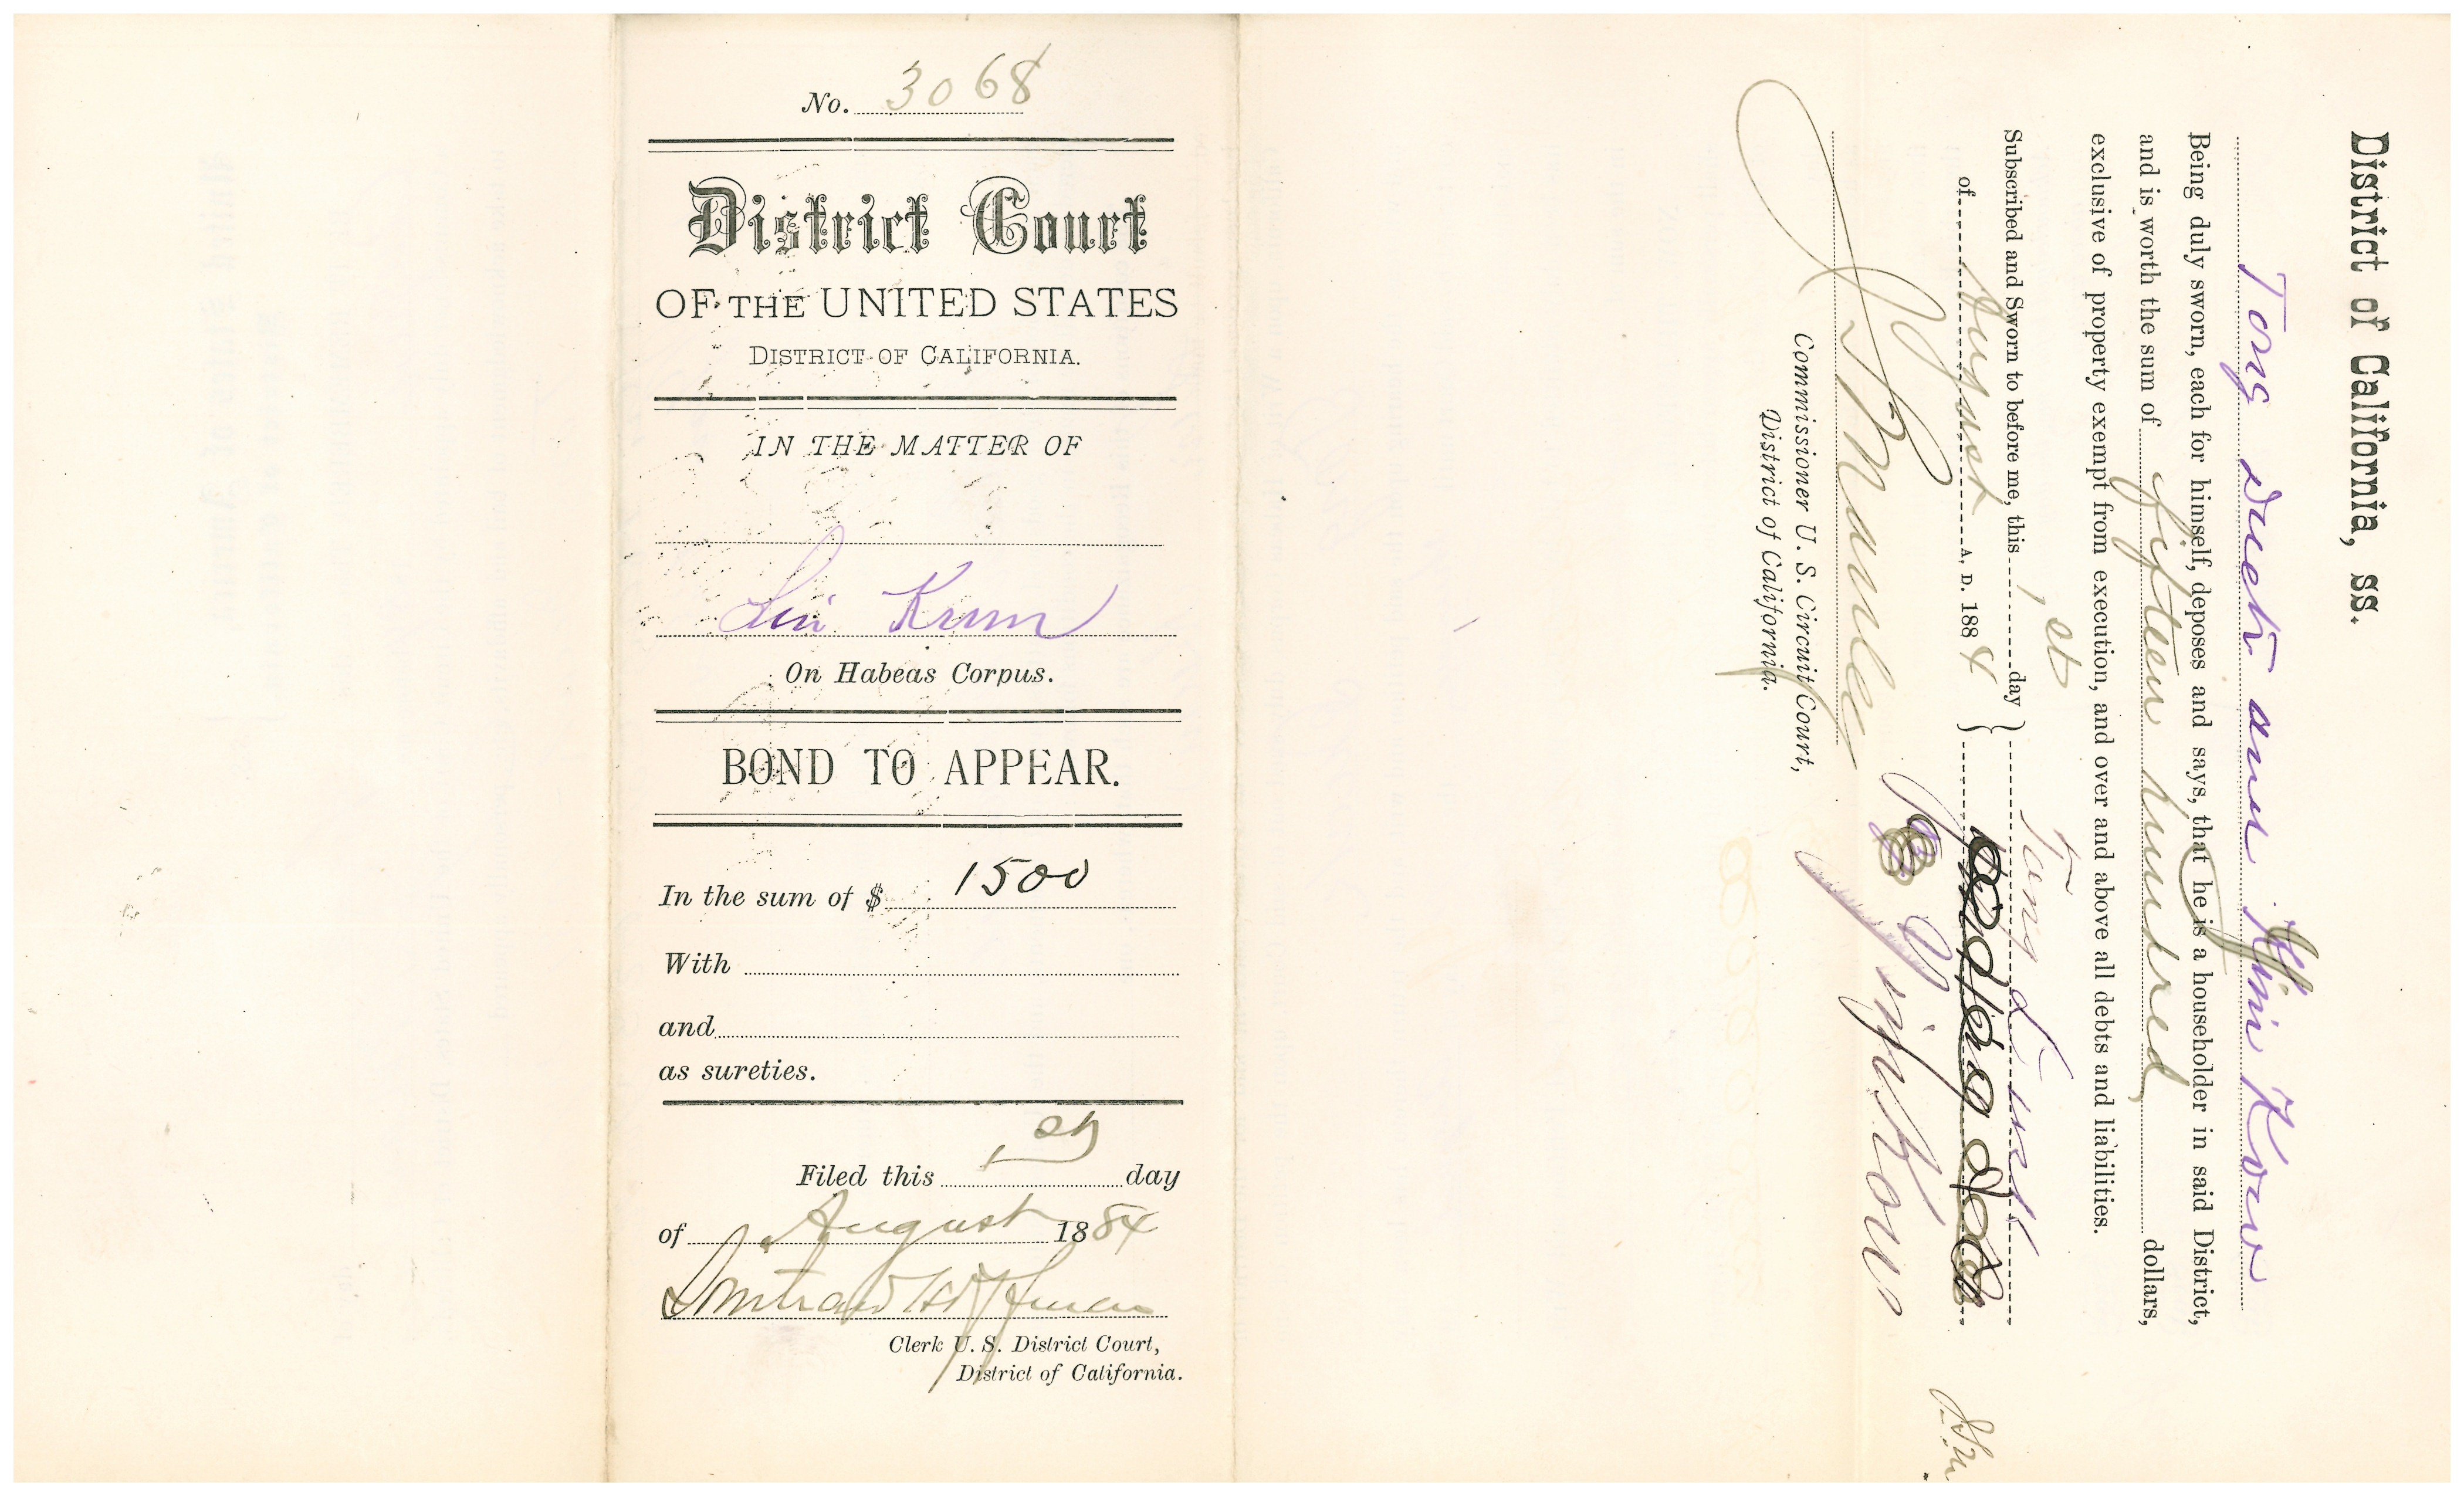 No. 3068
District Court
OF THE UNITED STATES
DISTRICT OF CALIFORNIA.
IN THE MATTER OF
Lui Kum
On Habeas Corpus.
BOND TO APPEAR.
In the sum of $ 1500
With
and
as sureties.
Filed this 1st day
of August 1884
Hoffman
Clerk U. S. District Court,
District of California.
District of California, ss.
Tong and Kow
Being duly sworn, each for himself, deposes and says, that he is a householder in said District,
and is worth the sum of fifteen hundred dollars,
exclusive of property exempt from execution, and over and above all debts and liabilities.
Subscribed and Sworn to before me, this 1st day
of August A. D. 1884
Manley
Commissioner U. S. Circuit Court,
District of California.
Tong
Kow